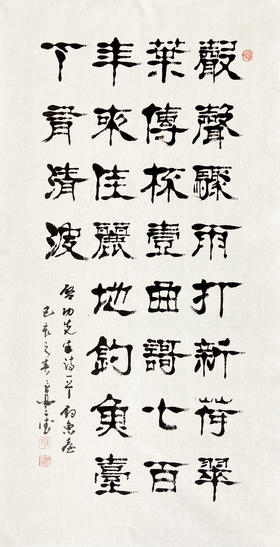 殸聲驟雨打新荷翠
葉傳杯壹曲謌七百
年來佳麗地釣魚臺
下看清波
啓功先生詩一首釣魚臺
己亥之春